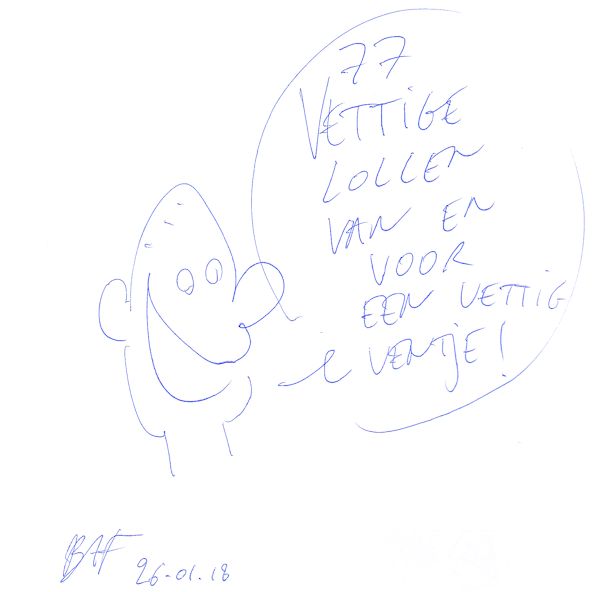 77
VETTIGE
LOLLEN
VAN EN
VOOR
EEN VETTIG
VENTJE!
BAF
26-01.18